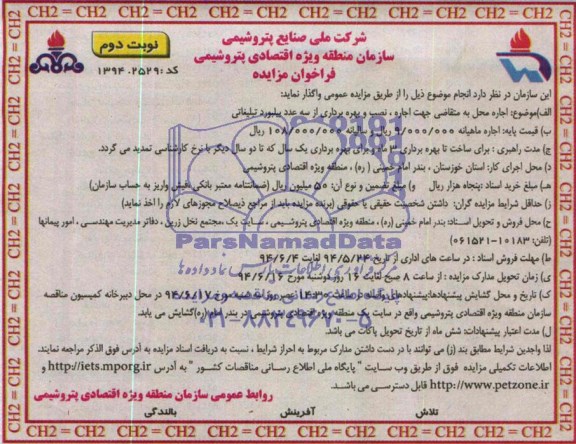 CH2 = CH2 = CH2 = CH2 = CH2 = CH2 = CH2 = CH2 = CH2
شرکت ملی صنایع پتروشیمی
سازمان منطقه ویژه اقتصادی پتروشیمی
فراخوان مزایده
نوبت دوم
کد: ۱۳۹۴.۲۵۲۹
این سازمان در نظر دارد انجام موضوع ذیل را از طریق مزایده عمومی واگذار نماید:
الف)موضوع: اجاره محل به متقاضی جهت اجاره ، نصب و بهره برداری از سه عدد بیلبورد تبلیغاتی
ب) قیمت پایه: اجاره ماهیانه ۹/۰۰۰/۰۰۰ ریال و سالیانه ۱۰۸/۰۰۰/۰۰۰ ریال
ج) مدت راهبری : برای ساخت تا بهره برداری ۳ ماه و برای بهره برداری یک سال که تا دو سال دیگر با نرخ کارشناسی تمدید می گردد.
د) محل اجرای کار: استان خوزستان ، بندر امام خمینی ( ره) ، منطقه ویژه اقتصادی پتروشیمی
هـ) مبلغ خرید اسناد :پنجاه هزار ریال و) مبلغ تضمین و نوع آن: ۵۰ میلیون ریال (ضمانتنامه معتبر بانکی ،فیش واریز به حساب سازمان)
ز) حداقل شرایط مزایده گران: داشتن شخصیت حقیقی یا حقوقی (برنده مزایده باید از مراجع ذیصلاح مجوزهای لازم را اخذ نماید)
ح) محل فروش و تحویل اسناد: بندر امام خمینی (ره) ، منطقه ویژه اقتصادی پتروشیمی ، سایت یک ،مجتمع نخل زرین ، دفاتر مدیریت مهندسی ، امور پیمانها
(تلفن: ۱۰۱۸۳-۰۶۱۵۲۱)
ط) مهلت فروش اسناد : در ساعت های اداری از تاریخ ۹۴/۵/۲۴ لغایت ۹۴/۶/۴
ی) زمان تحویل مدارک مزایده : از ساعت ۸ صبح لغایت ۱۶ روز دوشنبه مورخ ۹۴/۶/۱۶
ک) تاریخ و محل گشایش پیشنهادها: مورخ ۹۴/۶/۱۷ در محل دبیرخانه کمیسیون مناقصه
سازمان منطقه ویژه اقتصادی پتروشیمی واقع در سایت یک منطقه ویژه اقتصادی پتروشیمی در بندر امام (ره)گشایش می یابد.
ل) مدت اعتبار پیشنهادات: شش ماه از تاریخ تحویل پاکات می باشد.
لذا واجدین شرایط مطابق بند (ز) می توانند با در دست داشتن مدارک مربوط به احراز شرایط ، نسبت به دریافت اسناد مزایده به آدرس فوق الذکر مراجعه نمایند.
اطلاعات تکمیلی مزایده فوق از طریق وب سایت " پایگاه ملی اطلاع رسانی مناقصات کشور " به آدرس http://iets.mporg.ir و
http://www.petzone.ir قابل دسترسی می باشد.
روابط عمومی سازمان منطقه ویژه اقتصادی پتروشیمی
تلاش آفرینش بالندگی
ParsNamadData
۰۲۱-۸۸۳۴۹۶۷۰-۵
CH2 = CH2 = CH2 = CH2 = CH2 = CH2 = CH2 = CH2 = CH2